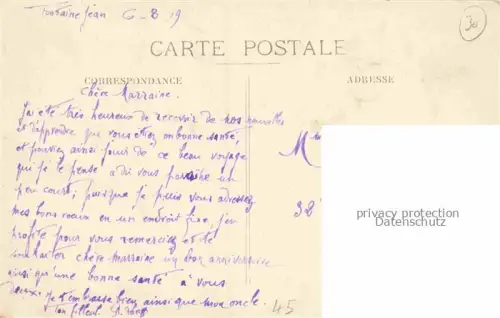 Fontaine Jean 6-8 19
30
CARTE POSTALE
CORRESPONDANCE
ADRESSE
Chère Marraine.
J'ai été très heureux de recevoir de nos nouvelles
et d'apprendre que vous étiez en bonne santé,
et pouviez ainsi jouir de ce beau voyage
qui je le pense a dû vous paraître un
peu court; puisque je puis vous adresser
mes bons vœux en un endroit fixe, j'en
profite pour vous remercier et te
souhaiter chère marraine un bon anniversaire
ainsi qu'une bonne santé à vous
deux. Je t'embrasse bien ainsi que mon oncle.
Ton filleul
M
38
privacy protection
Datenschutz
45